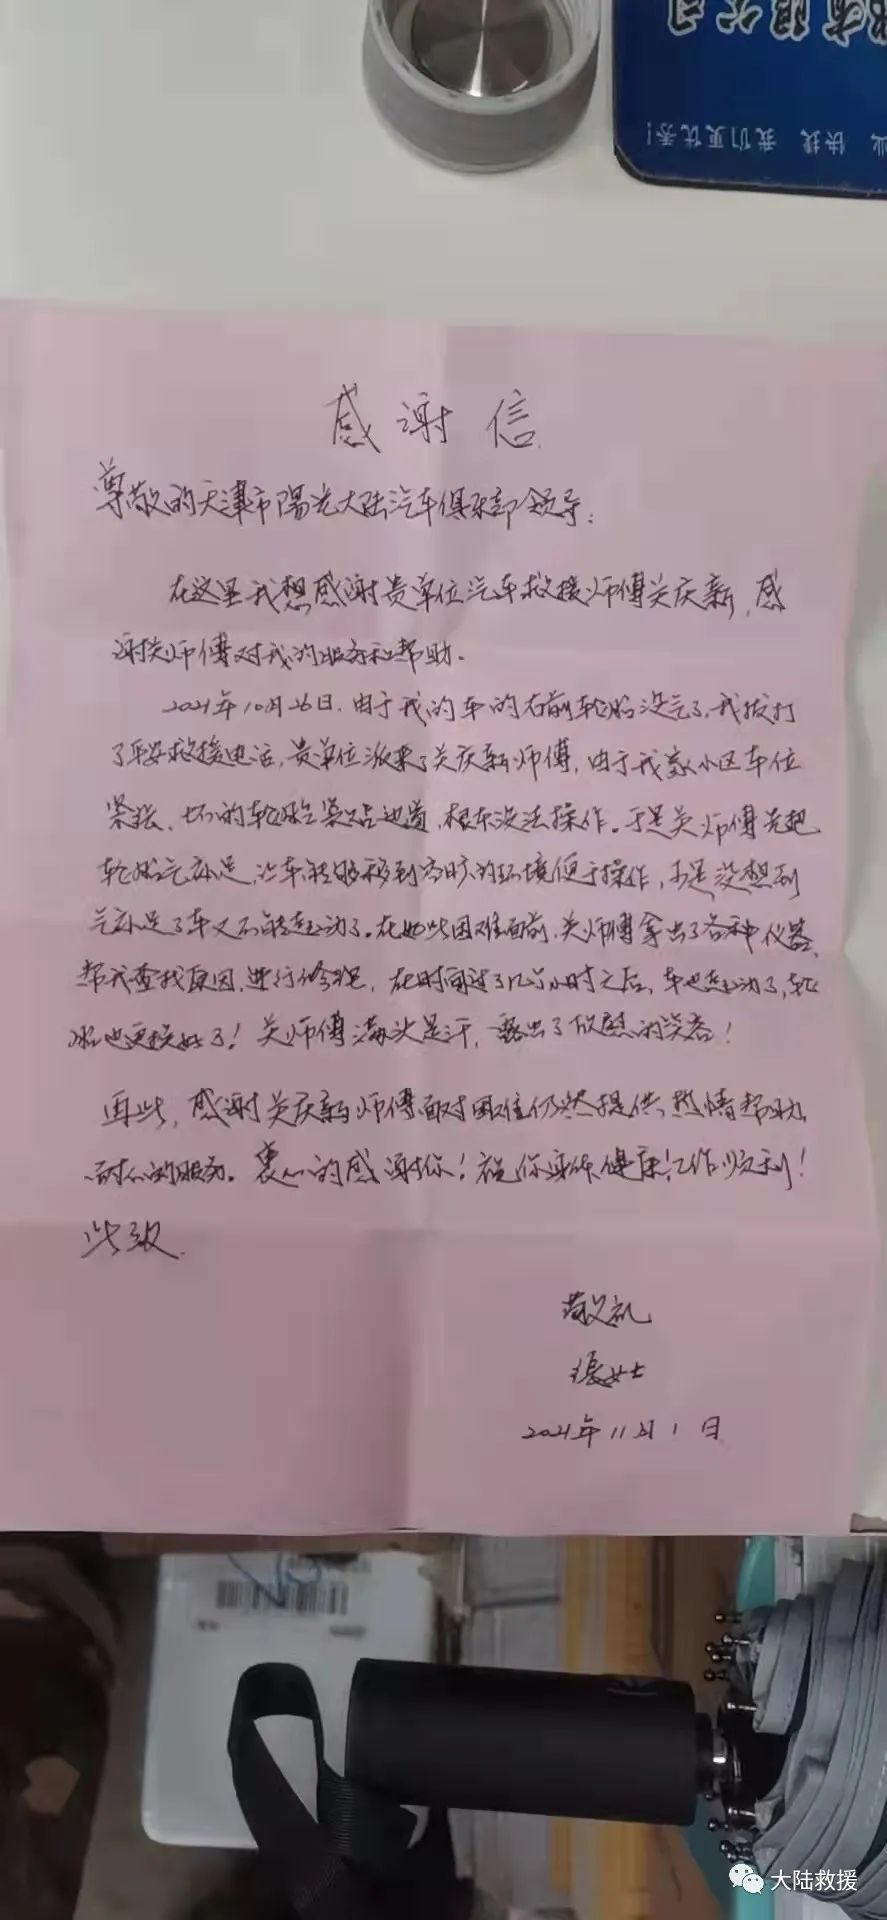 有限公司
业 快捷 我们更优秀！
感谢信
尊敬的天津市陽光大陆汽车俱乐部领导：
在这里我想感谢贵单位汽车救援师傅关庆新，感
谢关师傅对我的服务和帮助。
2021年10月26日，由于我的车的右前轮胎没气了，我拨打
了平安救援电话，贵单位派来了关庆新师傅，由于我家小区车位
紧张，坏的轮胎紧贴边道，根本没法操作。于是关师傅先把
轮胎气补足，让车能够移到空旷的环境便于操作，可是没想到
气补足了车又不能起动了。在如此困难面前，关师傅拿出了各种仪器，
帮我查找原因，进行修理，在时间过了几个小时之后，车也起动了，轮
胎也更换好了！关师傅满头是汗，露出了欣慰的笑容！
再此，感谢关庆新师傅面对困难仍然提供热情帮助，
耐心的服务。衷心的感谢你！祝你身体健康！工作顺利！
此致
敬礼
張女士
2021年11月1日
大陆救援